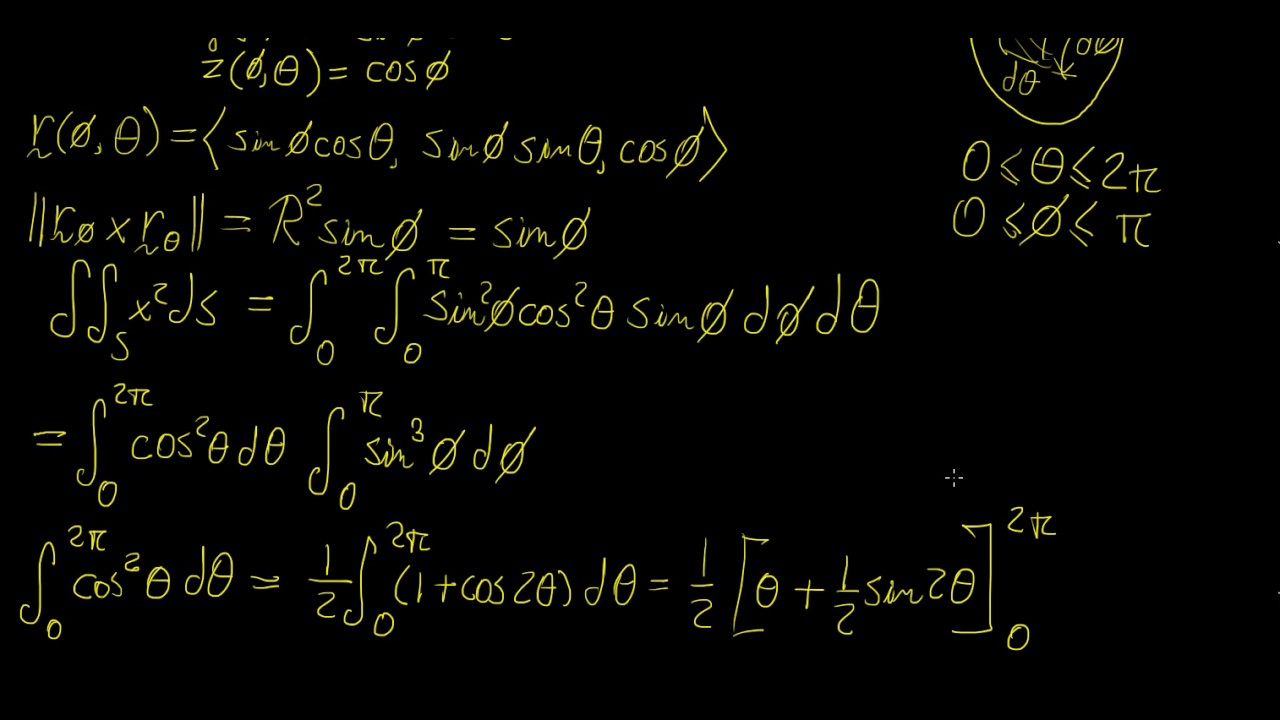 z(ϕ,θ) = cosϕ
dϕ
dθ
r(ϕ,θ) = ⟨sinϕcosθ, sinϕ sinθ, cosϕ⟩
0 ≤ θ ≤ 2π
‖rϕ × rθ‖ = R² sinϕ = sinϕ
0 ≤ ϕ ≤ π
∬_S x² dS = ∫_0^{2π} ∫_0^π sin²ϕcos²θ sinϕ dϕ dθ
= ∫_0^{2π} cos²θ dθ ∫_0^π sin³ϕ dϕ
∫_0^{2π} cos²θ dθ = 1/2 ∫_0^{2π} (1+cos2θ) dθ = 1/2 [θ + 1/2 sin2θ]_0^{2π}